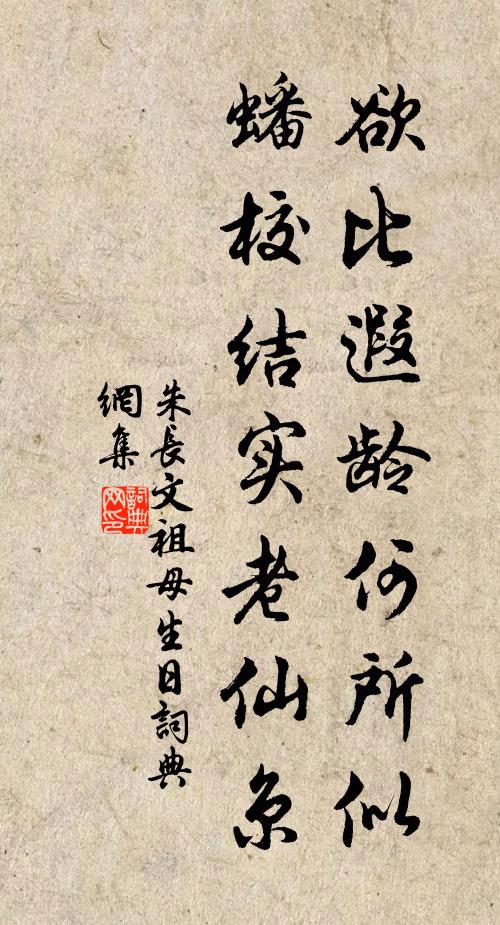 欲比遐龄何所似
蟠校结实老仙京
朱長文祖母生日詞典
網集
詞典网印